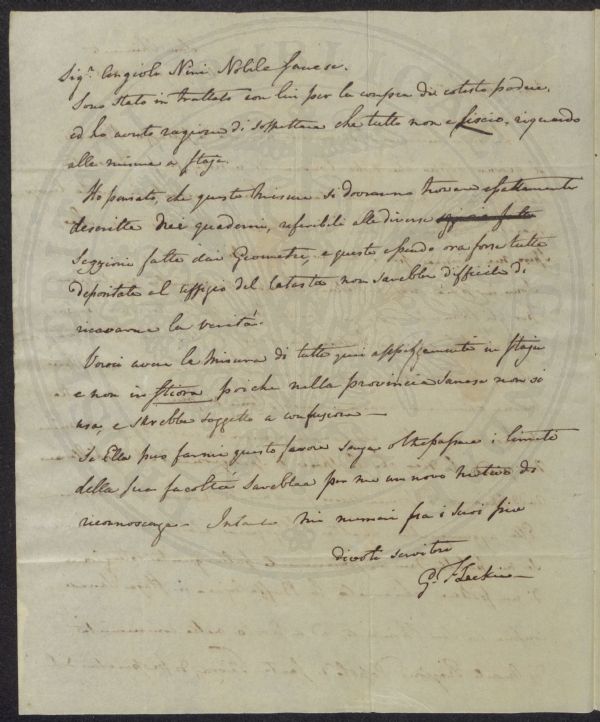 Sigr. Angiolo Nini Nobile Sanese.
Sono stato in trattato con lui per la compra di cotesto podere,
ed ho avuto ragione di sospettare che tutto non è liscio, riguardo
alle misure a staja.
Ho pensato, che queste misure si dovranno trovare esattamente
descritte nei quaderni, referibili alle diverse
Sezzioni fatte dai Geometri e queste essendo ora forse tutte
depositate al Uffizio del Catasto non sarebbe difficile di
ricavarne la verità.
Vorrei avere la misura di tutti quei appezzamenti in staja
e non in stiora poiche nella provincia Sanese non si
usa, e sarebbe soggetto a confusione —
Se Ella può farmi questo favore senza oltrepassare i limiti
della sua facoltà sarebbe per me un novo motivo di
riconoscenza — Intanto mi numeri fra i suoi piu
divoti servitori
G. F Leckie —